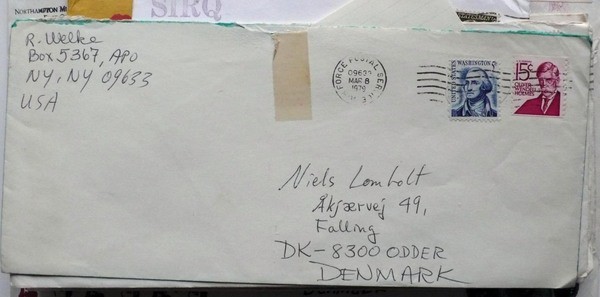 NORTHAMPTON
SIRQ
R. Welke
Box 5367, APO
NY, NY 09633
USA
FORCE POSTAL SER
09633
MAR 8
UNITED STATES
WASHINGTON 5c
15c
OLIVER
WENDELL
HOLMES
Niels Lomholt
Åkjærvej 49,
Falling
DK-8300 ODDER
DENMARK